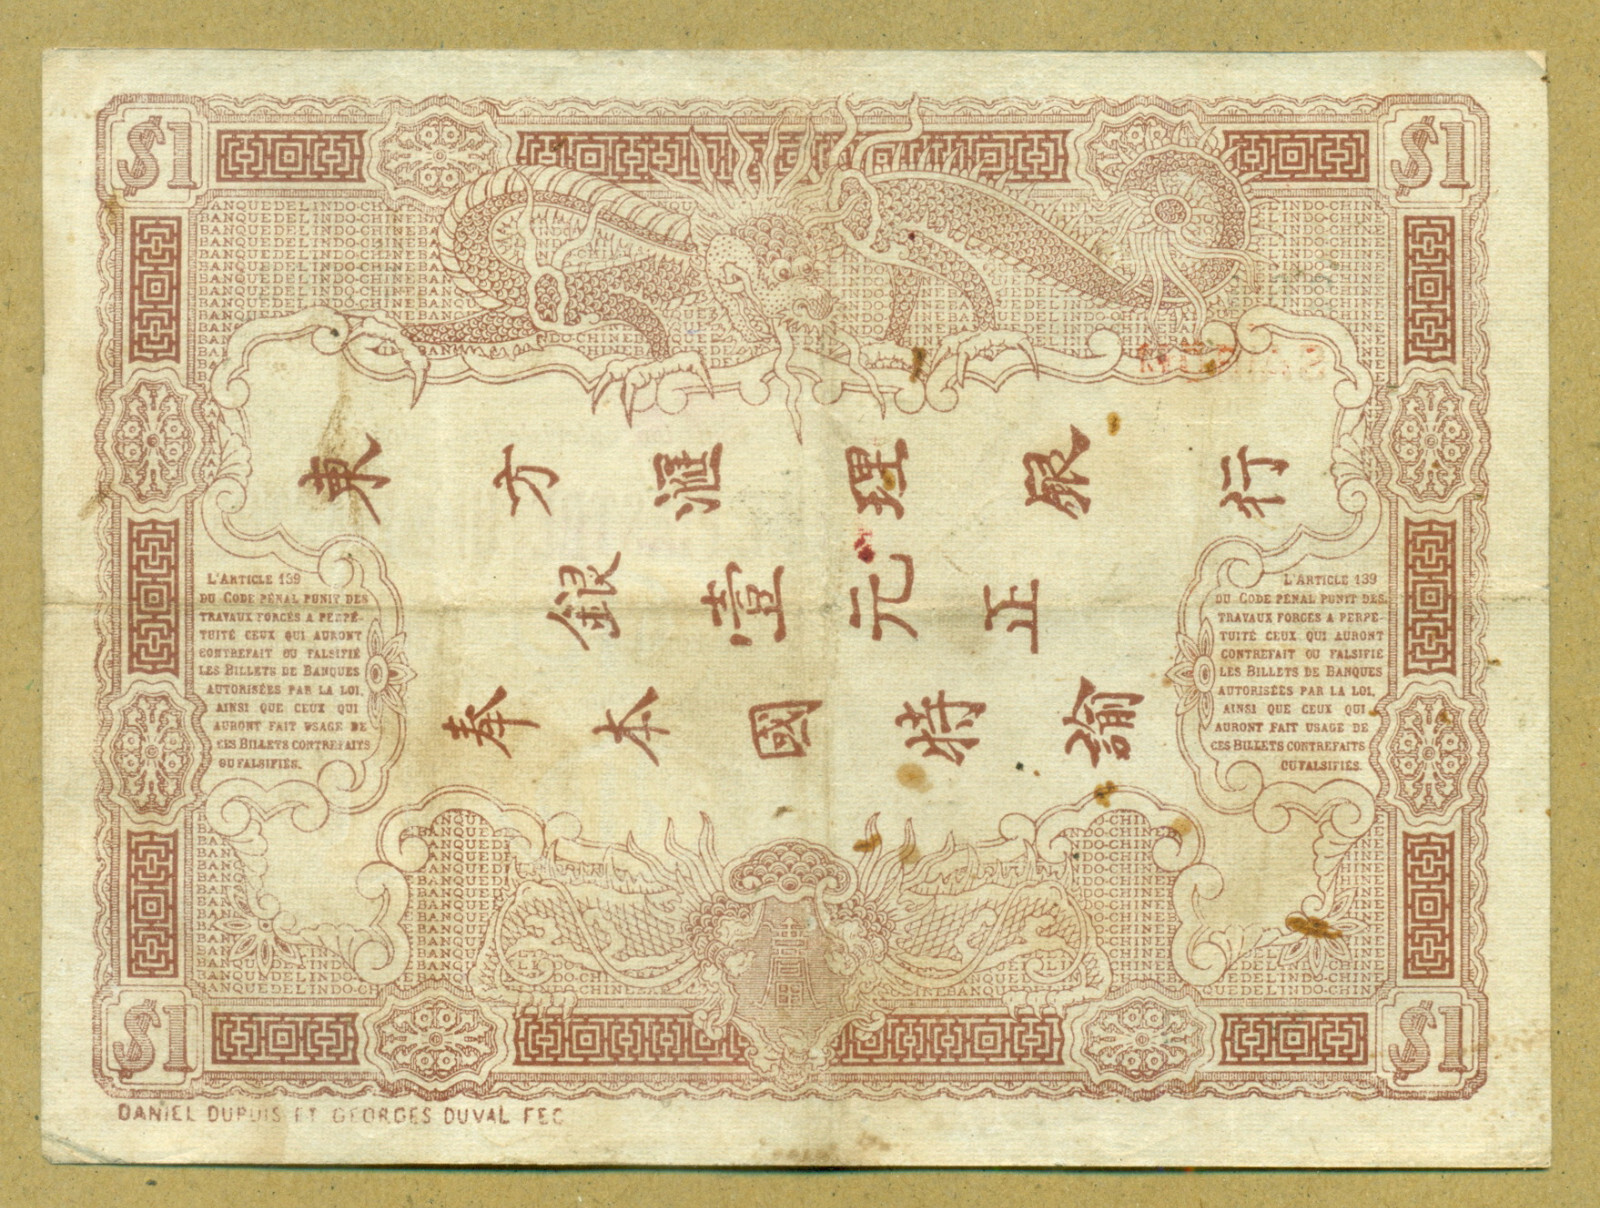 $1
$1
BANQUE DE L'INDO-CHINE
東方滙理銀行
銀壹元正
奉本國特諭
L'ARTICLE 139
DU CODE PÉNAL PUNIT DES
TRAVAUX FORCÉS A PERPÉ-
TUITÉ CEUX QUI AURONT
CONTREFAIT OU FALSIFIÉ
LES BILLETS DE BANQUES
AUTORISÉES PAR LA LOI,
AINSI QUE CEUX QUI
AURONT FAIT USAGE DE
CES BILLETS CONTREFAITS
OU FALSIFIÉS.
L'ARTICLE 139
DU CODE PÉNAL PUNIT DES
TRAVAUX FORCÉS A PERPÉ-
TUITÉ CEUX QUI AURONT
CONTREFAIT OU FALSIFIÉ
LES BILLETS DE BANQUES
AUTORISÉES PAR LA LOI,
AINSI QUE CEUX QUI
AURONT FAIT USAGE DE
CES BILLETS CONTREFAITS
OU FALSIFIÉS.
$1
$1
DANIEL DUPUIS ET GEORGES DUVAL FEC